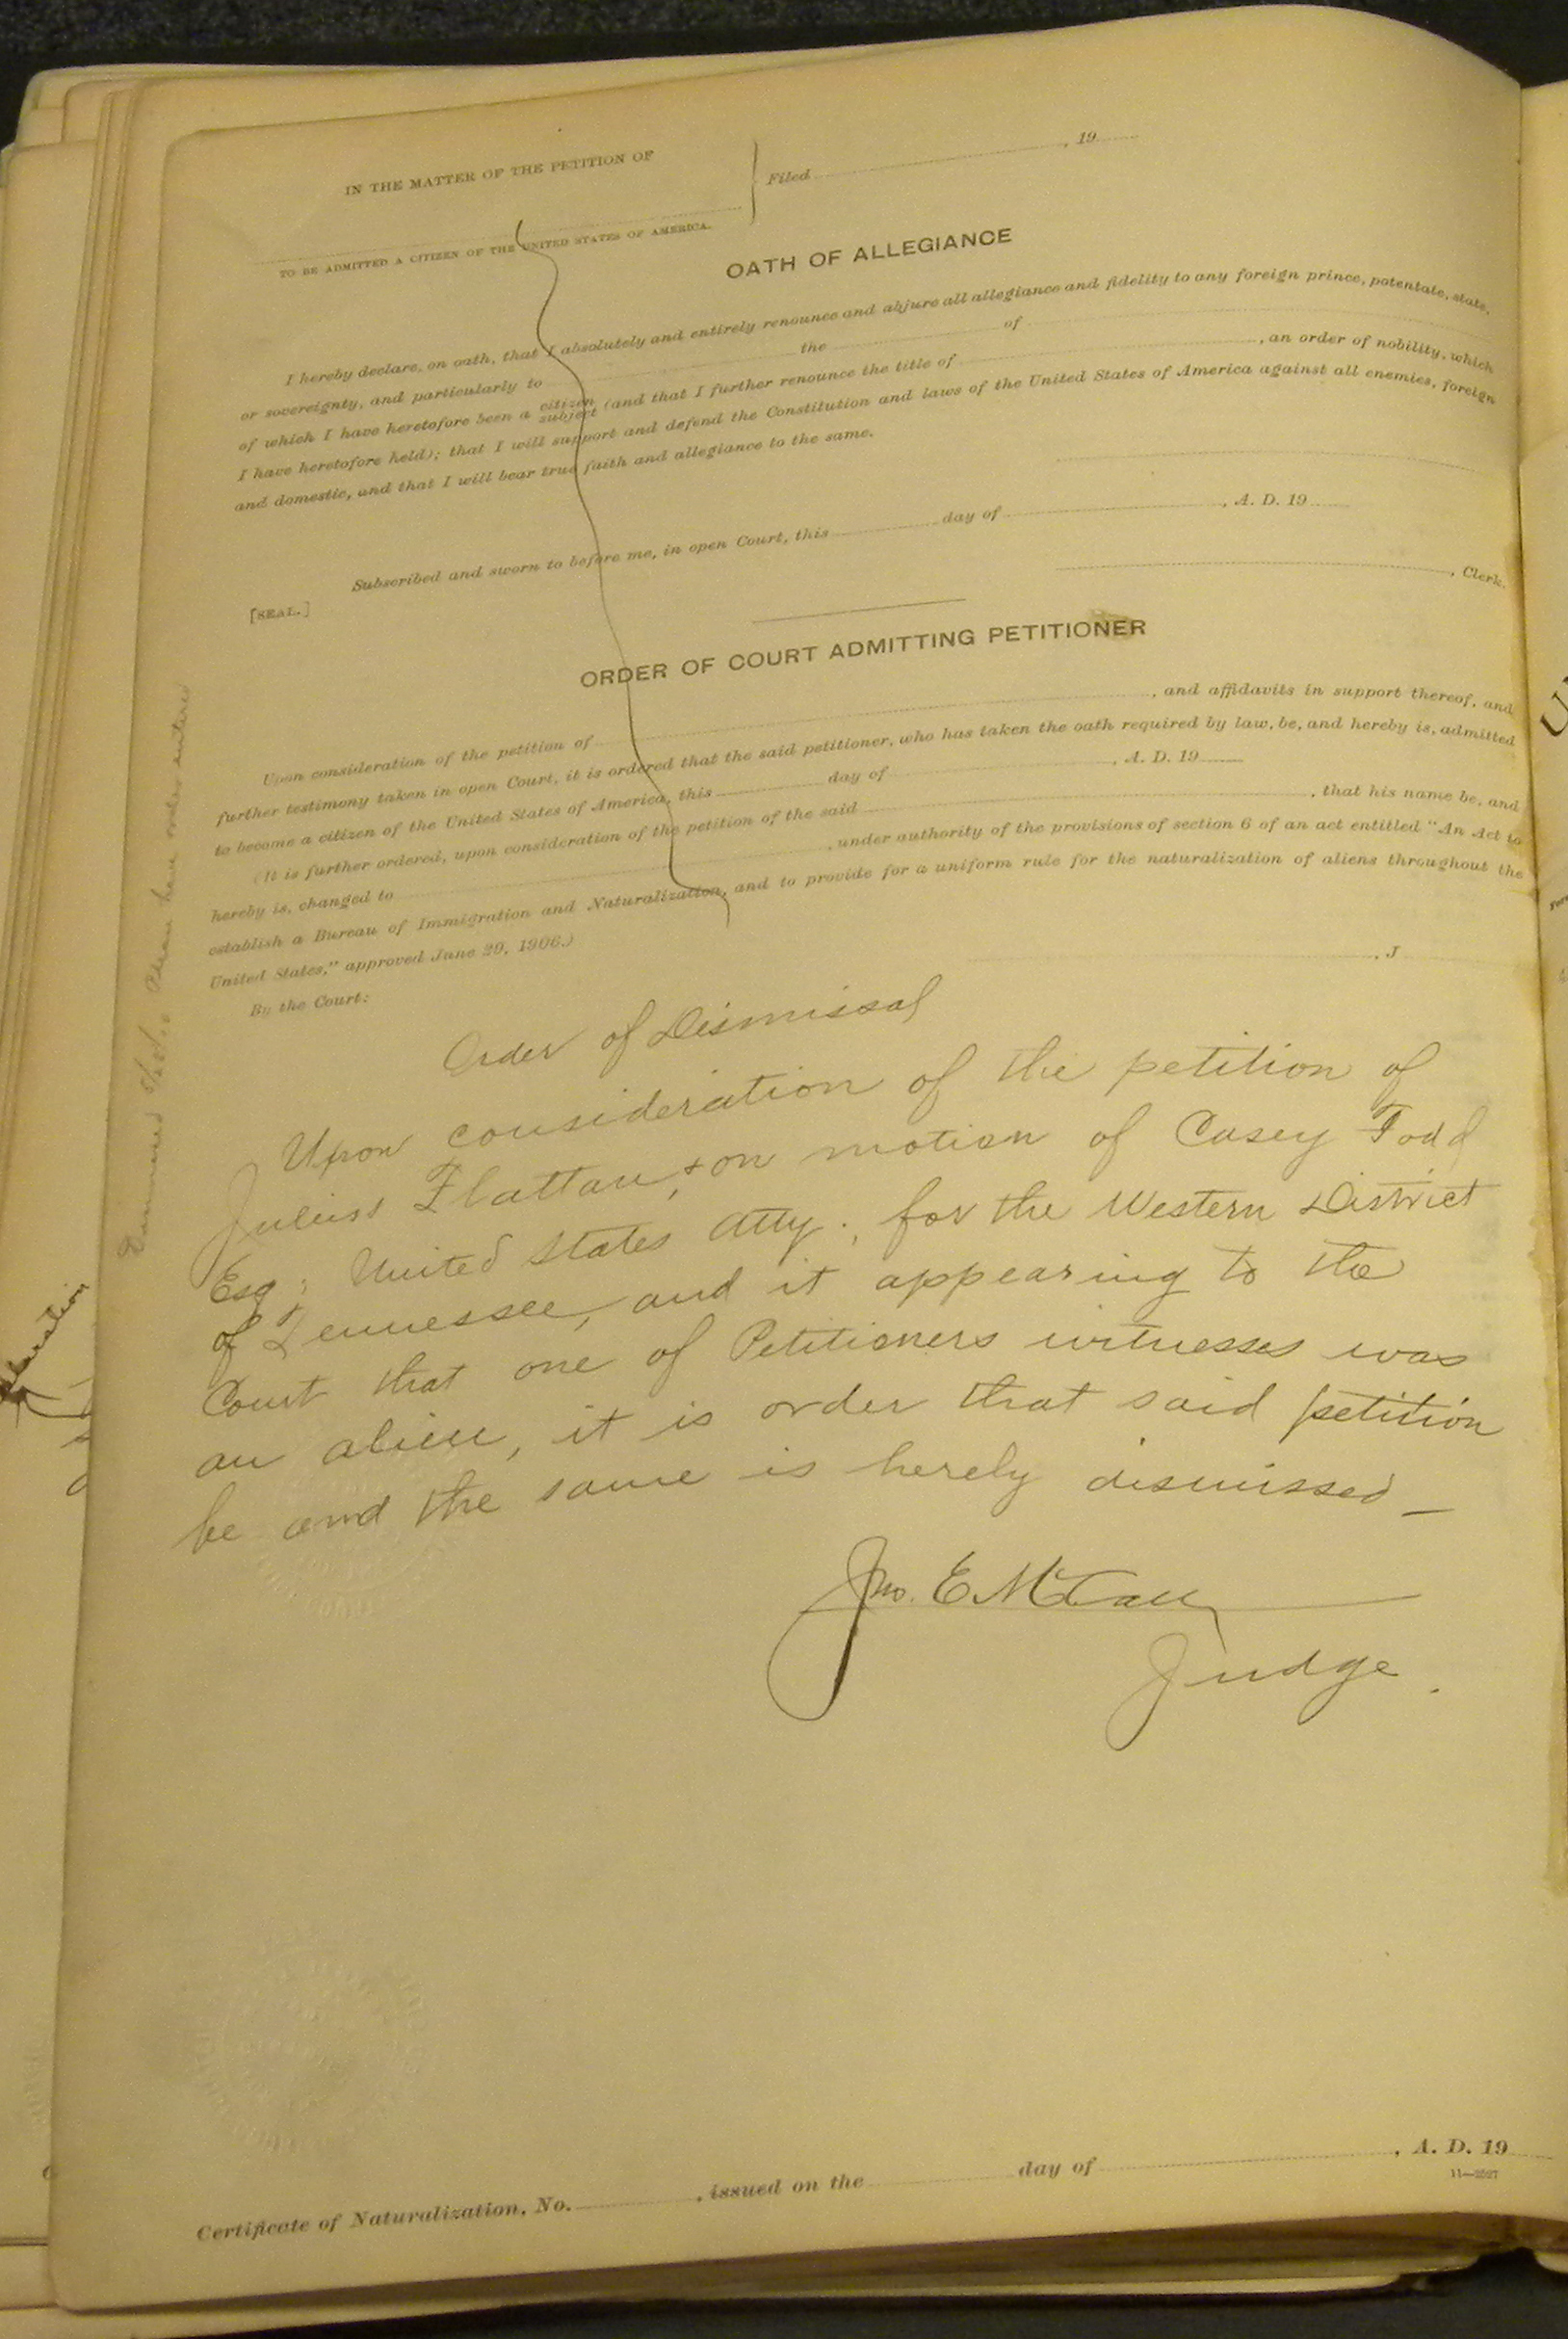 IN THE MATTER OF THE PETITION OF
Filed , 19
TO BE ADMITTED A CITIZEN OF THE UNITED STATES OF AMERICA.
OATH OF ALLEGIANCE
I hereby declare, on oath, that I absolutely and entirely renounce and abjure all allegiance and fidelity to any foreign prince, potentate, state,
or sovereignty, and particularly to the of
of which I have heretofore been a citizen subject (and that I further renounce the title of , an order of nobility, which
I have heretofore held); that I will support and defend the Constitution and laws of the United States of America against all enemies, foreign
and domestic, and that I will bear true faith and allegiance to the same.
Subscribed and sworn to before me, in open Court, this day of , A. D. 19
[SEAL.]
, Clerk.
ORDER OF COURT ADMITTING PETITIONER
Upon consideration of the petition of , and affidavits in support thereof, and
further testimony taken in open Court, it is ordered that the said petitioner, who has taken the oath required by law, be, and hereby is, admitted
to become a citizen of the United States of America, this day of , A. D. 19
(It is further ordered, upon consideration of the petition of the said , that his name be, and
hereby is, changed to , under authority of the provisions of section 6 of an act entitled "An Act to
establish a Bureau of Immigration and Naturalization, and to provide for a uniform rule for the naturalization of aliens throughout the
United States," approved June 29, 1906.)
By the Court:
, J
Order of Dismissal
Upon consideration of the petition of
Juluis Flattau, + on motion of Casey Todd
Esq; United States Atty. for the Western District
of Tennessee, and it appearing to the
Court that one of Petitioners witnesses was
an alien, it is order that said petition
be and the same is hereby dismissed —
Jno. E McCall
Judge.
Certificate of Naturalization, No. , issued on the day of , A. D. 19
11—2527